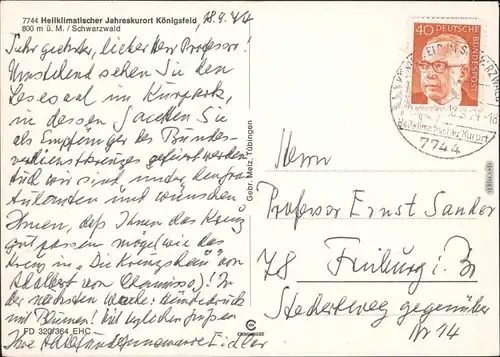 7744 Heilklimatischer Jahreskurort Königsfeld,
800 m ü. M. / Schwarzwald
18.9.74
Sehr geehrter, lieber Herr Professor!
Umstehend sehen Sie den
Lesesaal im Kurpark,
in dessen Sie
als Empfänger des Bundes-
verdienstkreuzes gefeiert werden.
Auch wir sind unter den
Gratulanten und wünschen
Ihnen, daß Ihnen das Kreuz
gut passen möge (wie das
Kreuz in "Die Kreuzschau" von
Adalbert von Chamisso)! In
der nächsten Woche: Händedruck
und Blumen! Mit herzlichen Grüßen
Ihre Hildegard Annemarie Eidler
FD 320/364 EHC
Gebr. Metz, Tübingen
40
DEUTSCHE BUNDESPOST
Heilklimatischer Kurort
7744
Herrn
Professor Ernst Sander
78 Freiburg i. Br
gegenüber
Nr 14